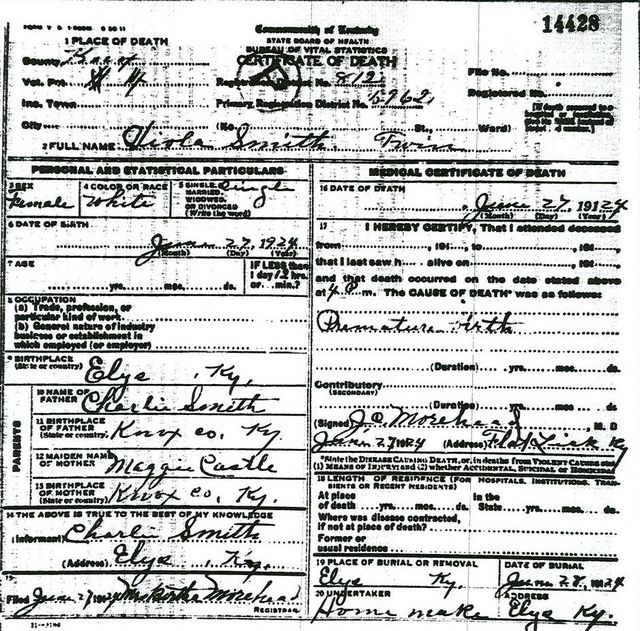 14428
Commonwealth of Kentucky
STATE BOARD OF HEALTH
BUREAU OF VITAL STATISTICS
CERTIFICATE OF DEATH
1 PLACE OF DEATH
County Knox
Vot. Pct.
Inc. Town
City
Registration District No. 812
Primary Registration District No. 5962
File No.
Registered No.
(No. St., Ward)
2 FULL NAME Viola Smith Twin
PERSONAL AND STATISTICAL PARTICULARS
3 SEX
Female
4 COLOR OR RACE
White
5 SINGLE, MARRIED, WIDOWED, OR DIVORCED (Write the word)
Single
6 DATE OF BIRTH
June 27, 1924
(Month) (Day) (Year)
7 AGE
yrs. mos. ds.
IF LESS than 1 day 12 hrs. or min.?
8 OCCUPATION
(a) Trade, profession, or particular kind of work
(b) General nature of industry business or establishment in which employed (or employer)
9 BIRTHPLACE
(State or country) Elys Ky.
PARENTS
10 NAME OF FATHER Charlie Smith
11 BIRTHPLACE OF FATHER
(State or country) Knox co. Ky
12 MAIDEN NAME OF MOTHER Maggie Castle
13 BIRTHPLACE OF MOTHER
(State or country) Knox co. Ky.
14 THE ABOVE IS TRUE TO THE BEST OF MY KNOWLEDGE
(Informant) Charli Smith
(Address) Elys Ky.
15
Filed June 27 1924 Mrs Bertha Morehead
REGISTRAR
MEDICAL CERTIFICATE OF DEATH
16 DATE OF DEATH
June 27, 1924
(Month) (Day) (Year)
17 I HEREBY CERTIFY, That I attended deceased
from , 191 , to , 191 ,
that I last saw h alive on , 191 ,
and that death occurred on the date stated above
at 4 P m. The CAUSE OF DEATH* was as follows:
Premature birth
(Duration) yrs. mos. ds.
Contributory
(SECONDARY)
(Duration) yrs. mos. ds.
(Signed) J.O. Morehead, M. D
June 27 1924 (Address) Flat Lick Ky
*State the DISEASE CAUSING DEATH, or, in deaths from VIOLENT CAUSES state
(1) MEANS OF INJURY; and (2) whether ACCIDENTAL, SUICIDAL or HOMICIDAL
18 LENGTH OF RESIDENCE (FOR HOSPITALS, INSTITUTIONS, TRANSIENTS OR RECENT RESIDENTS)
At place of death yrs. mos. ds. In the State yrs. mos. ds.
Where was disease contracted, if not at place of death?
Former or usual residence
19 PLACE OF BURIAL OR REMOVAL
Elys Ky.
DATE OF BURIAL
June 28, 1924
20 UNDERTAKER
Home make
ADDRESS
Elys Ky.